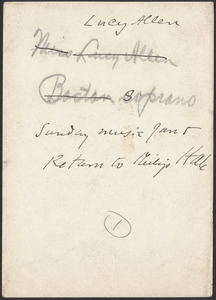 Lucy Allen
Miss Lucy Allen
Boston Soprano
Sunday music Jan 5
Return to Philip Hale
1